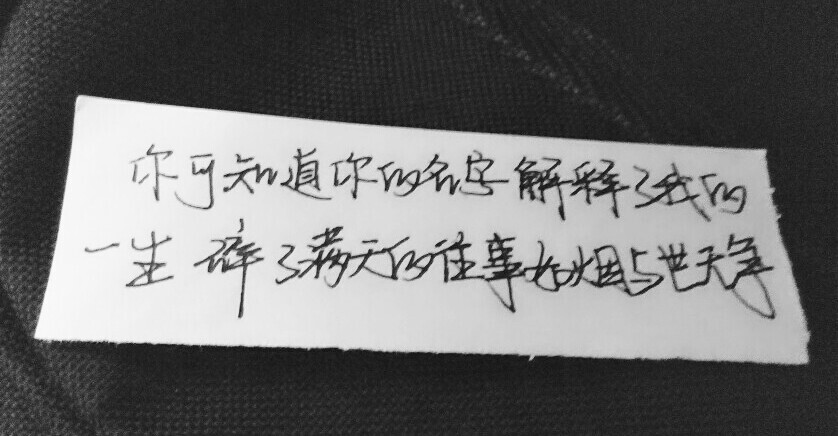 你可知道你的名字解释了我的
一生 碎了满天的往事如烟与世无争